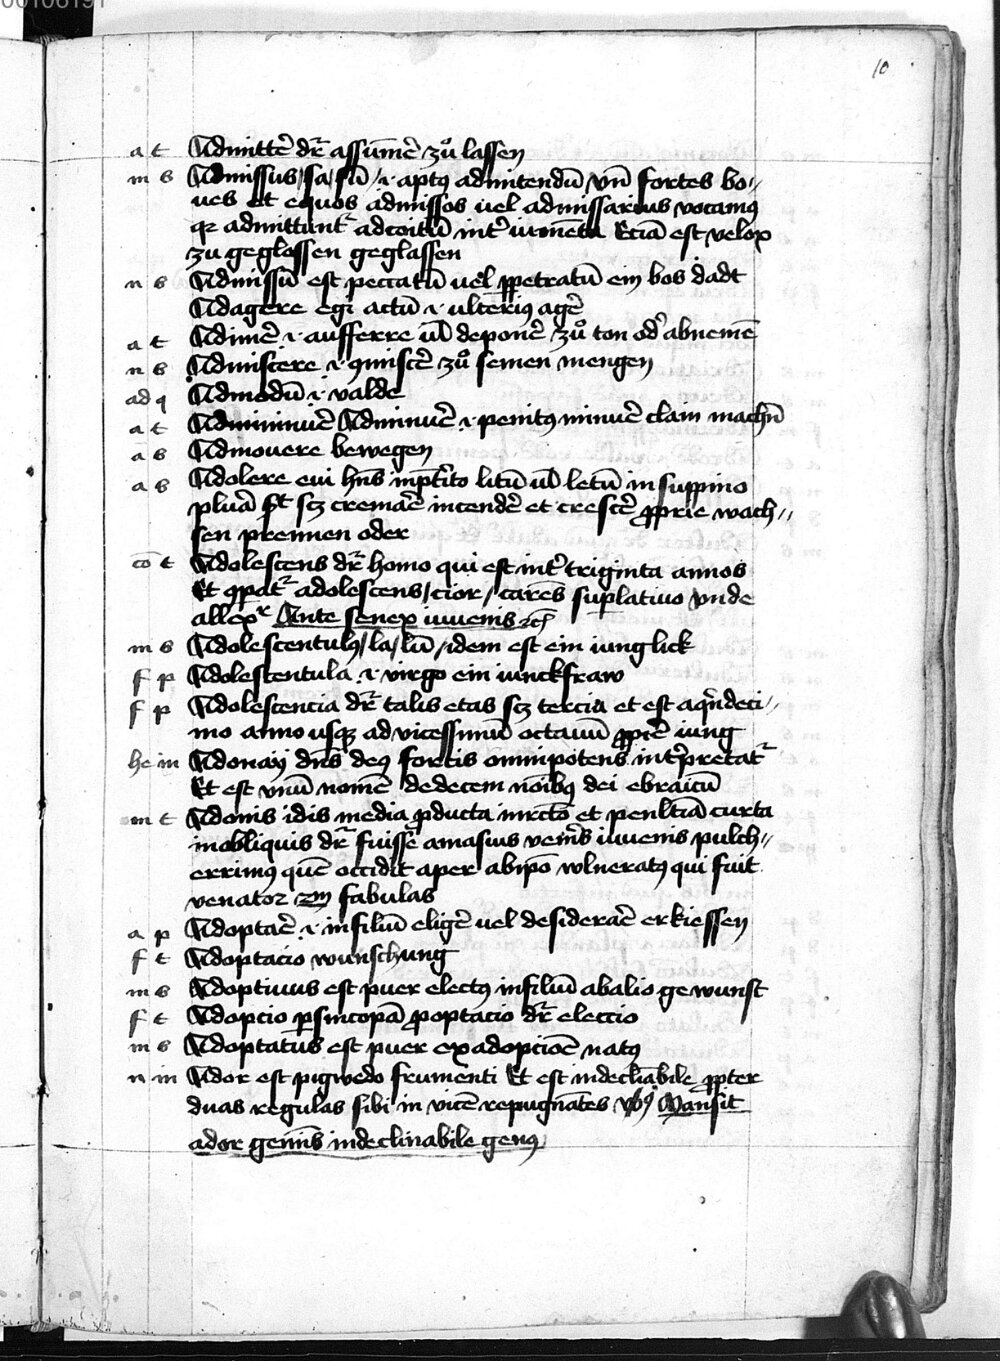 10
a t Admittē dr̄ assumē̄ zů lassen
m s Admissus / sa / sū / .i. aptꝰ admitendū vn̄ fortes bo//
ues et equos admissos uel admissarius vocamꝰ
qz admittuntr̄ ad coitū int̓ iumēta Eciā est velox
zu geglossen geglassen
n s Admissū est peccatū uel ꝑpetratū ein bos dadt
Adagere egi actū .i. ulteriꝰ agē
a t Adimē .i. aufferre ul̄ deponē zů ton od̓ abnemē
n s Admiscere .i. ꝯmiscē zů semen mengen
ad q Admodū .i. valde
a t Adminuē Adminuē .i. penitꝰ minuē clain machn̄
a s Admouere bewegen
a s Adolere eui hn̄s in p̄t̓ito litū ul̄ letū in suppino
pluā St̄ scz cremāē incendē et crescē ꝓprie wach//
sen prennen oder
cō t Adolescens dr̄ homo qui est int̓ triginta annos
Et ꝯpatr̄ adolescens / cior / carēs suplatiuo vnde
allexr̄ Ante senex iuuenis ꝛcꝭ
m s Adolescentulꝰ / la / lū / idem est ein iunglick
f p Adolescentula .i. virgo ein iunckfraw
f p Adolescencia dr̄ talis etas scz tercia et est aqn̄deci//
mo anno usqꝫ ad vicessimū octauū ꝓpē iung
he in Adonay dn̄s deꝰ fortis omnipotens int̓pretatr̄
Et est vnū nomē de decem nōibꝰ dei ebraicū
m t Adonis idis media ꝓducta in rc̄to et penltiā curta
in obliquis dr̄ fuisse amasius ven̄is iuuenis pulch//
errimꝰ quē occidit aper ab ipō wlneratꝰ qui fuit
venator zm fabulas
a p Adoptāē .i. in filiū eligē uel desiderāē erkiessen
f t Adoptacio wunschung
m s Adoptiuus est puer electꝰ in filiū ab alio gewunst
f t Adopcio ꝑ sincopā ꝓ optacio dr̄ eleccio
m s Adoptatus est puer ex adopcioē natꝰ
n in Ador est pigwedo frumenti Et est indecliābile ꝓpter
duas regulas sibi in vicē repugnātes Mansit
ador genn̄s indeclinabile genꝰ